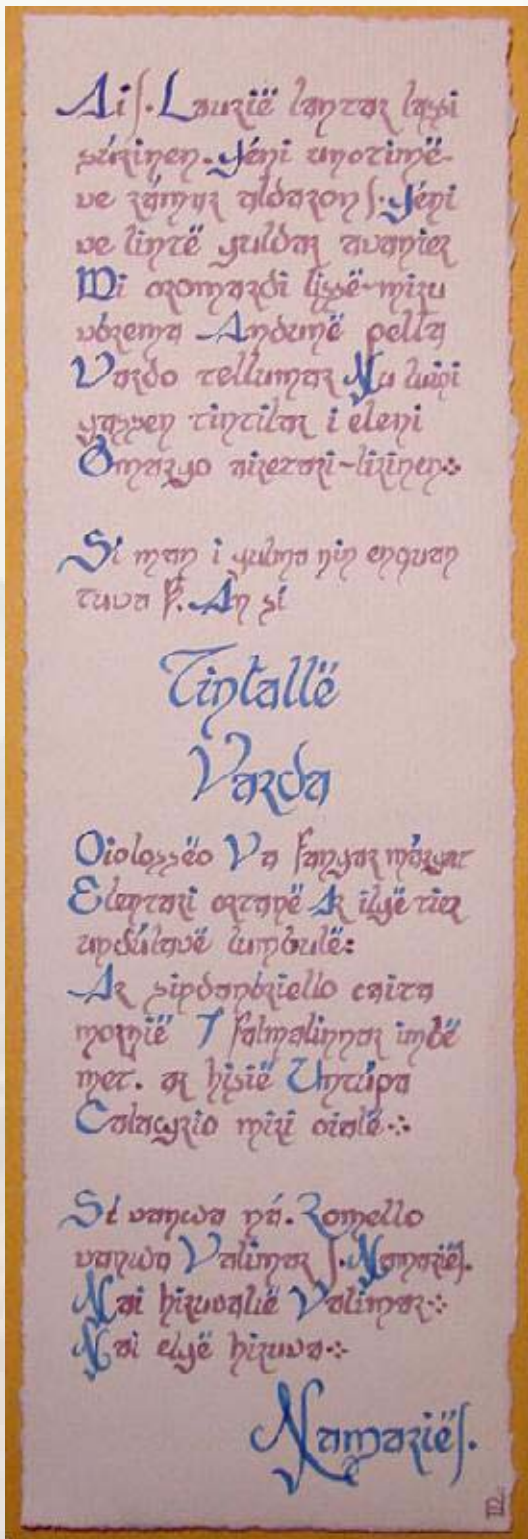 Ai!. Laurië lantar lassi
súrinen. Yéni unotimë-
ve rámar aldaron!. Yéni
ve lintë yuldar avanier
Mi oromardi lissë-miru
vórema Andunë pella
Vardo tellumar Nu luini
yassen tintilar i eleni
Omaryo airetari-lirinen⁘
Si man i yulma nin enquan
tuva ?. An sí
Tintallë
Varda
Oiolossëo Va fanyar máryat
Elentari ortanë Ar ilyë tier
undúlavë lumbulë:
Ar sindanóriello caita
mornië I falmalinnar imbë
met. ar hisië Untúpa
Calacyrio miri oialë⁘
Sí vanwa ná. Romello
vanwa Valimar !. Namarië!.
Nai hiruvalië Valimar⁘
Nai elyë hiruva⁘
Namarië!.